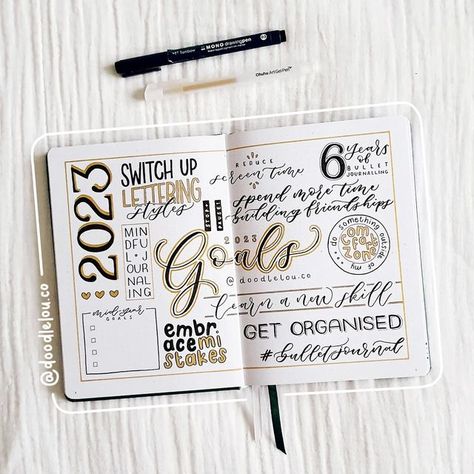 Tombow MONO drawing pen
Ohuhu ArtGelPen™
2023
SWITCH UP
LETTERING
styles
MIN
DFU
L•J
OUR
NAL
ING
STOP
PAUSE
mid-year
GOALS
embr.
ace mi
stakes
2023
Goals
@doodlelou.co
REDUCE
screen time
6 Years
of
BULLET
JOURNALLING
spend more time
building friendships
do something outside of my
COMFORT
ZONE
learn a new skill
GET ORGANISED
#bulletjournal
@doodlelou.co